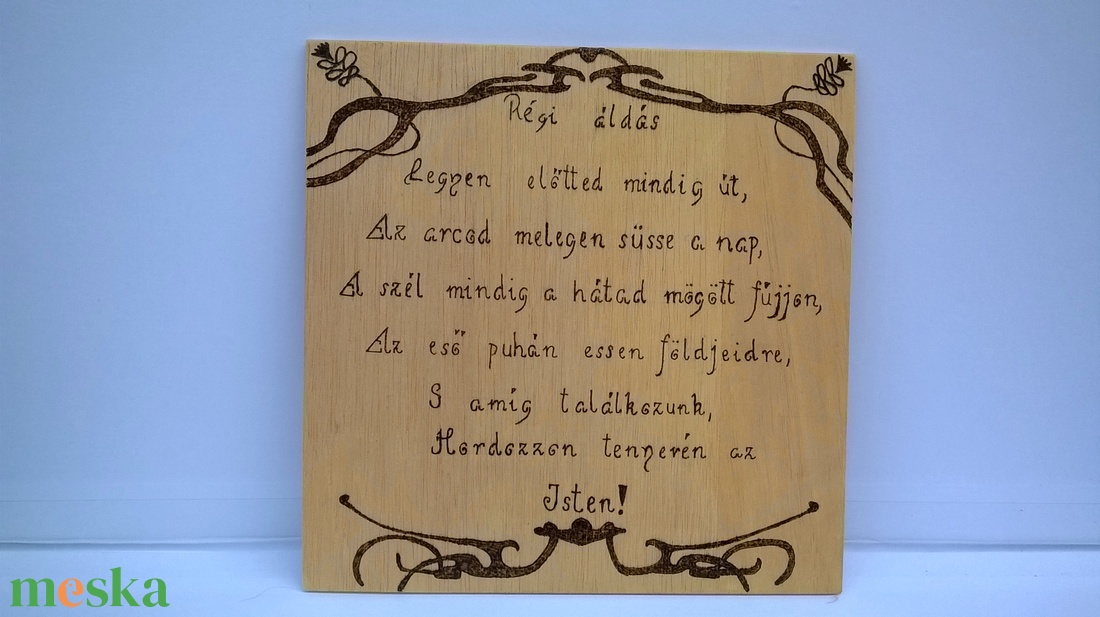 Régi áldás
Legyen előtted mindig út,
Az arcod melegen süsse a nap,
A szél mindig a hátad mögött fújjon,
Az eső puhán essen földjeidre,
S amíg találkozunk,
Hordozzon tenyerén az
Isten!
meska